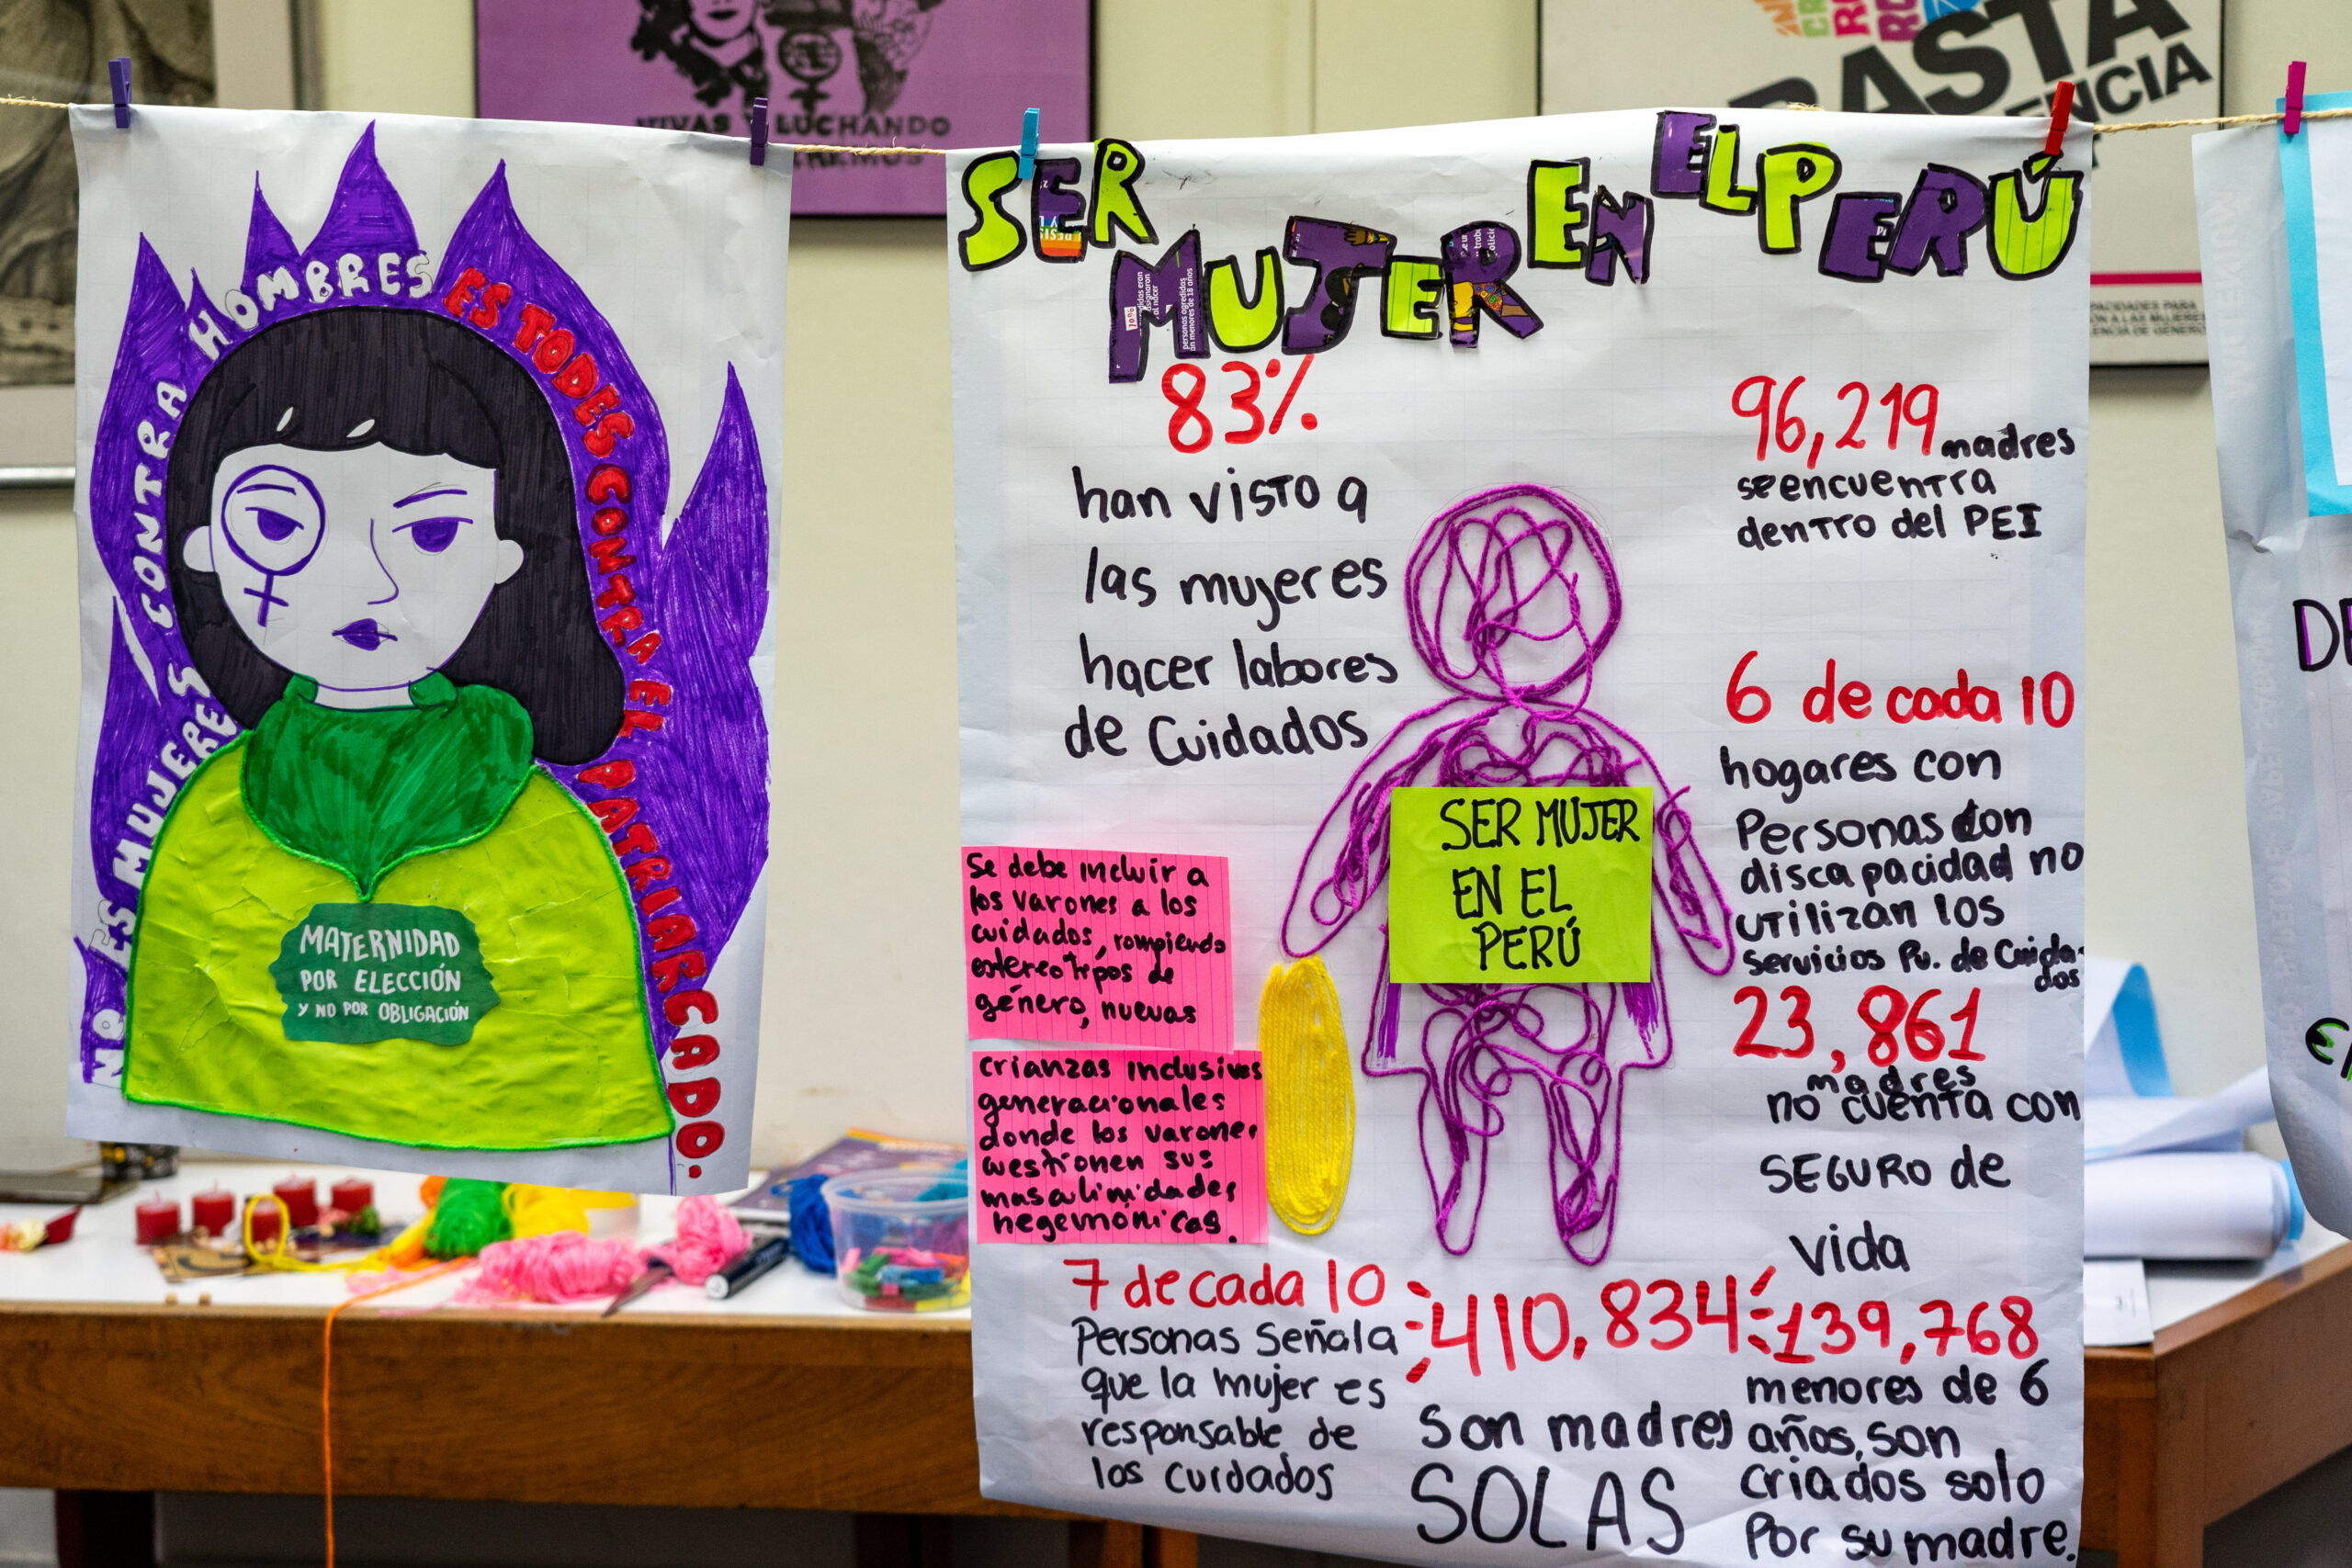 VIVAS Y LUCHANDO
BASTA
NO ES MUJERES CONTRA HOMBRES
ES TODES CONTRA EL PATRIARCADO.
MATERNIDAD
POR ELECCIÓN
Y NO POR OBLIGACIÓN
SER
MUJER
EN
EL PERÚ
83%
han visto a
las mujeres
hacer labores
de Cuidados
96,219 madres
se encuentra
dentro del PEI
6 de cada 10
hogares con
Personas con
discapacidad no
utilizan los
Servicios Pu. de Cuida-
dos
SER MUJER
EN EL
PERÚ
Se debe incluir a
los varones a los
cuidados, rompiendo
estereotipos de
género, nuevas
crianzas inclusivas
generacionales
donde los varones
cuestionen sus
masculinidades
hegemónicas.
23,861
madres
no cuenta con
SEGURO de
vida
7 de cada 10
Personas Señala
que la mujer es
responsable de
los cuidados
410,834
Son madres
SOLAS
139,768
menores de 6
años, son
criados solo
Por su madre.